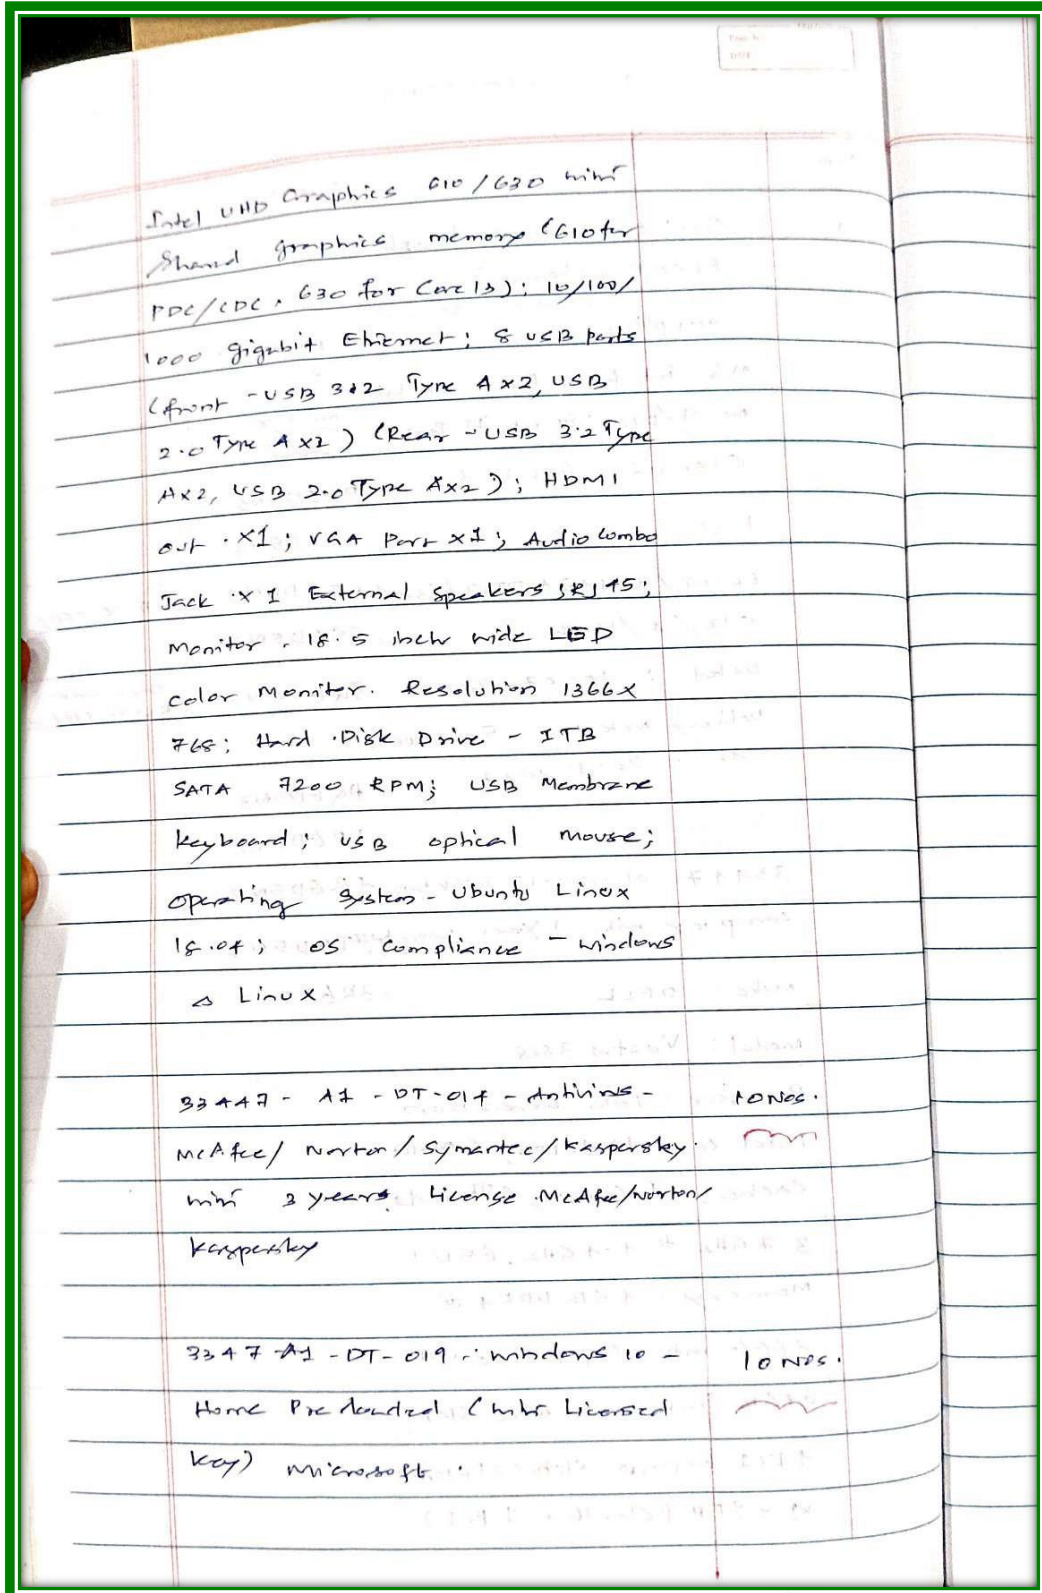 Intel UHD Graphics 610/630 with
Shared graphics memory (610 for
PDC/CDC, 630 for Core i3); 10/100/
1000 gigabit Ethernet; 8 USB ports
(front - USB 3.2 Type A x2, USB
2.0 Type A x2) (Rear - USB 3.2 Type
A x2, USB 2.0 Type A x2); HDMI
out x1; VGA Port x1; Audio Combo
Jack x 1 External Speakers ; RJ45;
Monitor . 18.5 inch wide LED
color Monitor. Resolution 1366 x
768; Hard Disk Drive - 1TB
SATA 7200 RPM; USB Membrane
keyboard; USB optical mouse;
operating System - Ubuntu Linux
18.04; OS compliance - windows
Linux
33447 - A1 - DT-014 - Antivirus - 10 Nos.
McAfee/ Norton/ Symantec/ Kaspersky.
with 3 years License McAfee/Norton/
Kaspersky
3347-A1-DT-019 - windows 10 - 10 Nos.
Home Pre loaded (with Licensed
key) Microsoft.